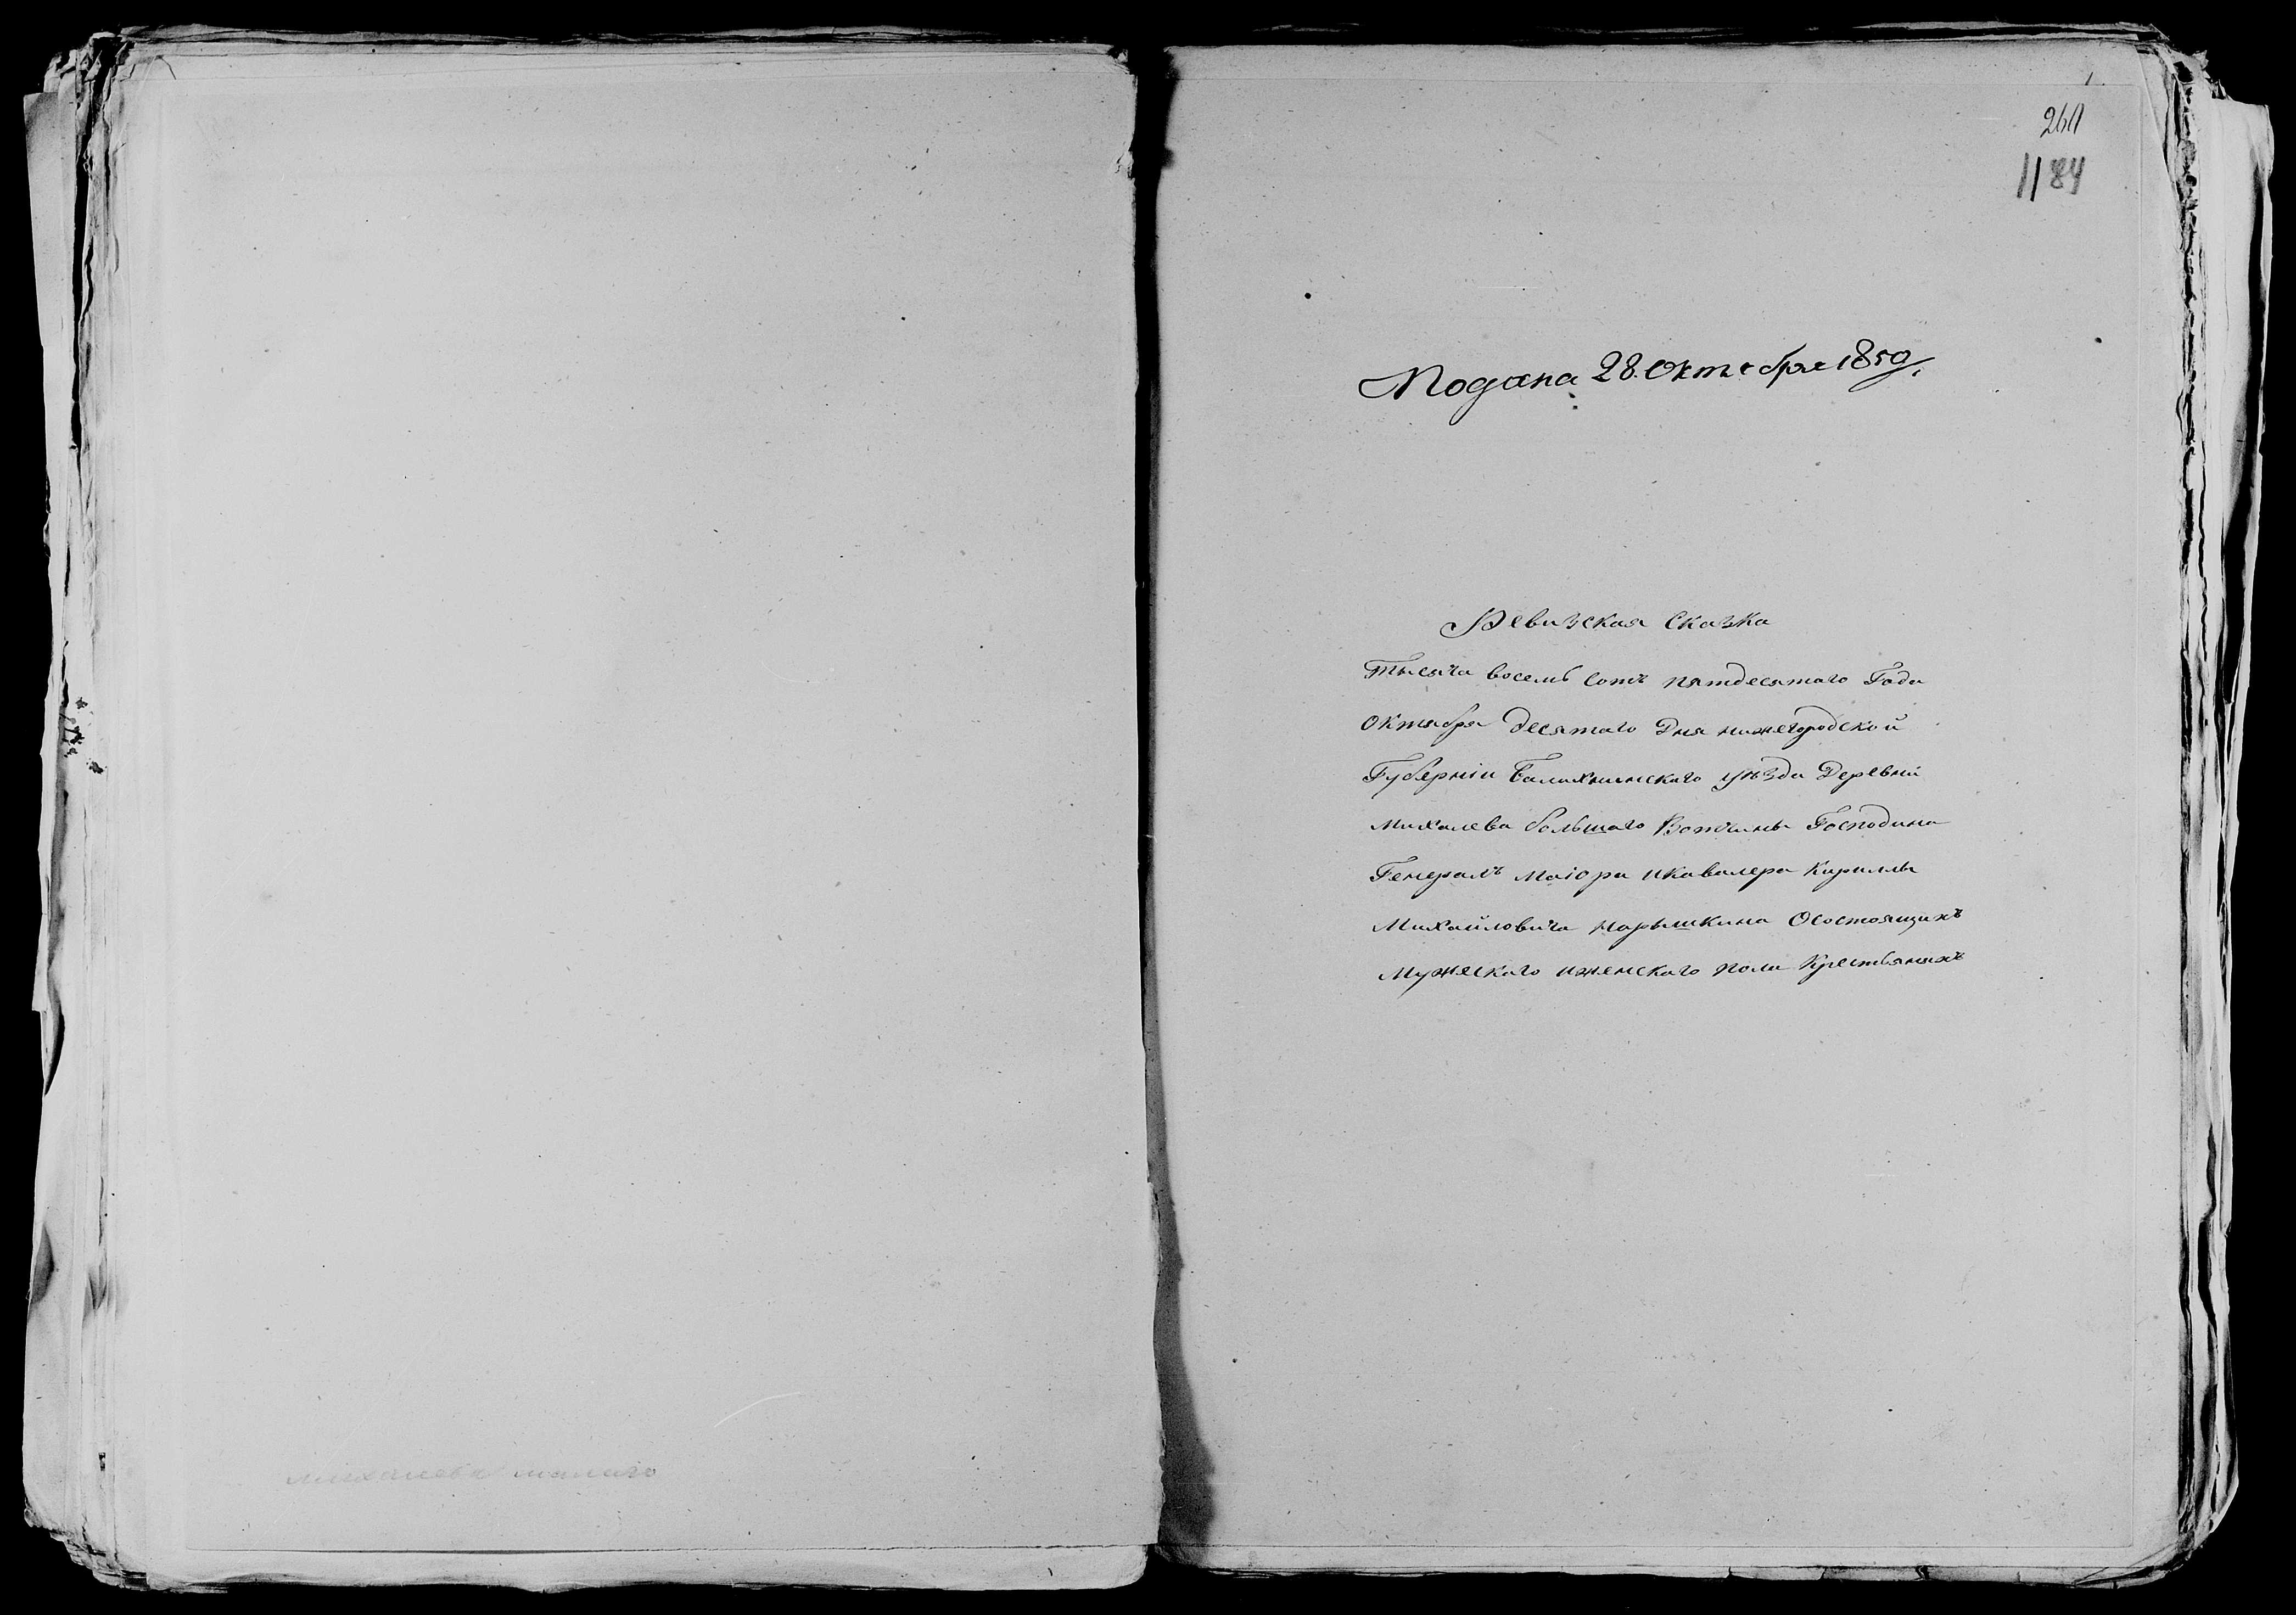 михалева малаго
1184
Подана 28. Октебрае 1850,
Ревизская Сказка
Тысяча восемь сотъ пятдесятаго Года
октября десятаго Дня нижегородской
Губерніи Балахнинскаго уѣзда Деревни
михалева большаго Вотчины Господина
Генералъ маіора икавалера Кириллы
Михайловича нарышкина Осостоящихъ
Мужескаго иженскаго пола Крестьянахъ